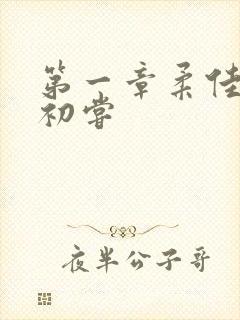 第一章柔佳
初嘗
夜半公子哥